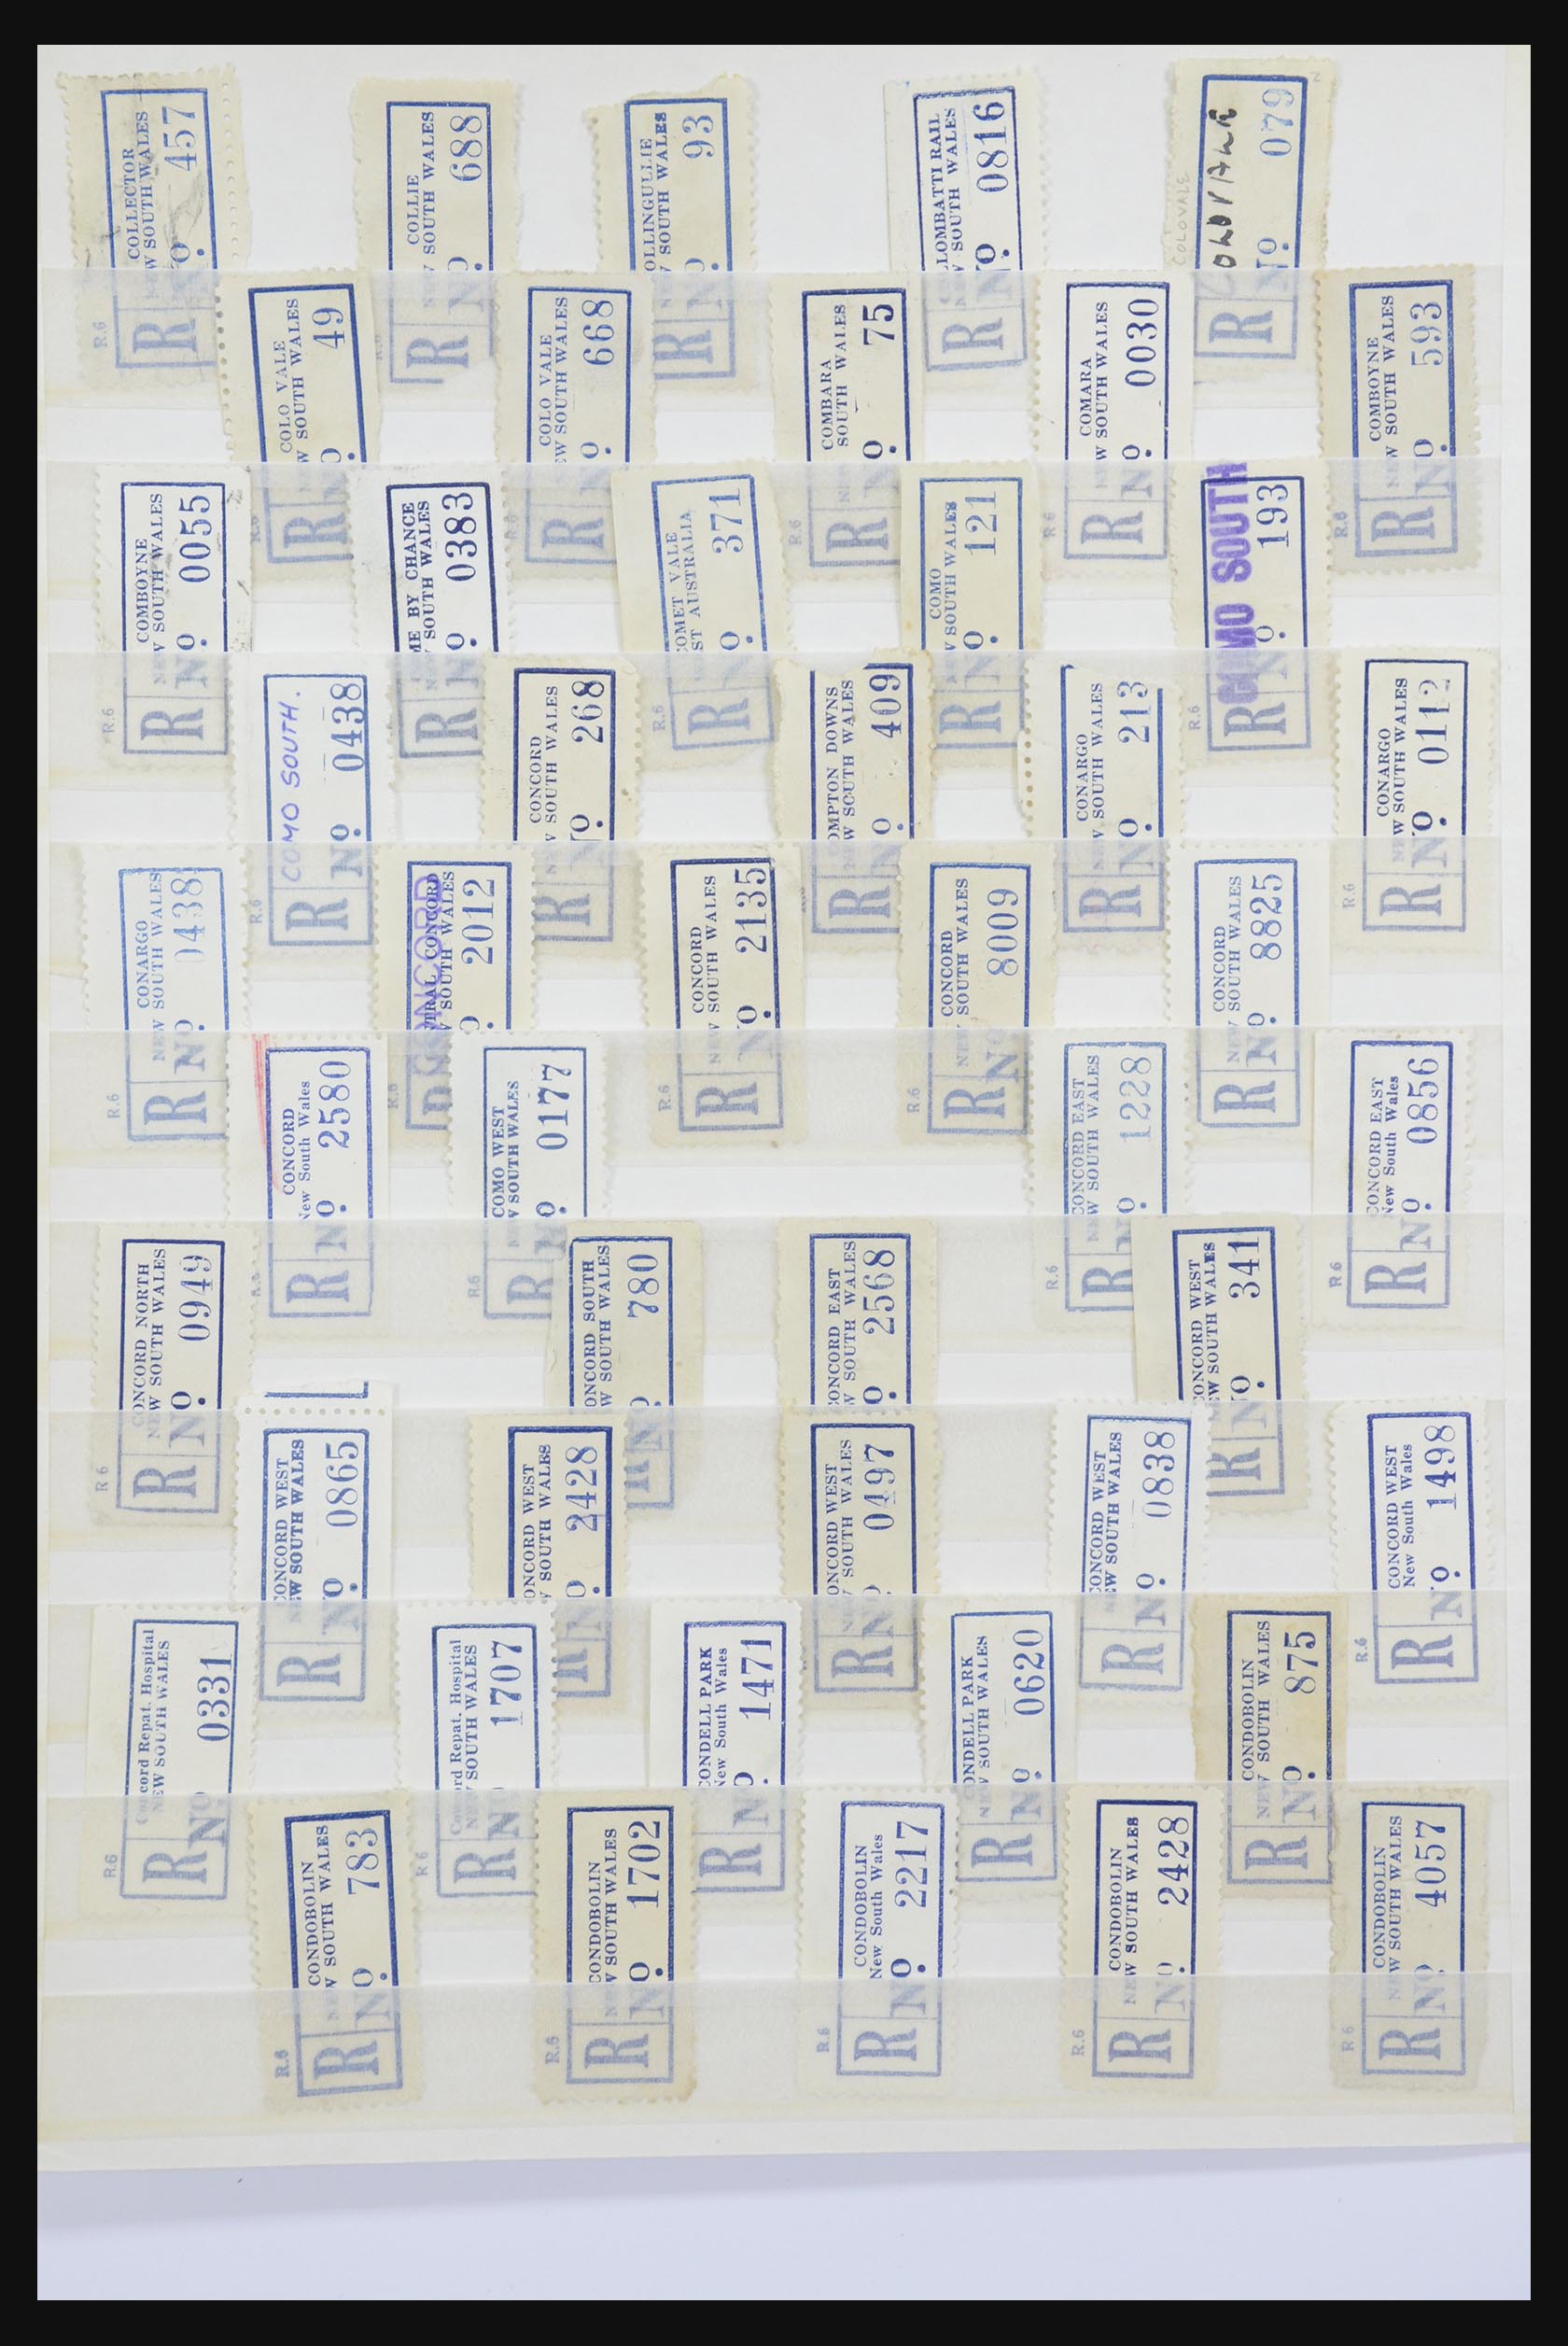 COLLECTOR
W SOUTH WALES
R.6
R No 457
COLLIE
NEW SOUTH WALES
R No 688
OLLINGULLIE
SOUTH WALES
R No 93
LOMBATTI RAIL
SOUTH WALES
R No 0816
COLOVALE
R No 079
COLO VALE
W SOUTH WALES
R No 49
COLO VALE
EW SOUTH WALES
R No 668
COMBARA
SOUTH WALES
R No 75
COMARA
NEW SOUTH WALES
R.6
R No 0030
COMBOYNE
NEW SOUTH WALES
R.6
R No 593
COMBOYNE
NEW SOUTH WALES
R.6
R No 0055
ME BY CHANCE
SOUTH WALES
R No 0383
OMET VALE
ST AUSTRALIA
R.6
R No 371
COMO
W SOUTH WALES
R.6
R No 121
COMO SOUTH
R.6
R No 193
COMO SOUTH.
R.6
R No 0438
CONCORD
W SOUTH WALES
R No 268
OMPTON DOWNS
W SOUTH WALES
R No 409
CONARGO
NEW SOUTH WALES
R No 213
CONARGO
NEW SOUTH WALES
R.6
R No 0112
CONARGO
NEW SOUTH WALES
R.6
R No 0438
TRAL CONCORD
SOUTH WALES
CONCORD
R.6
No 2012
CONCORD
NEW SOUTH WALES
R.6
R No 2135
CONCORD
NEW SOUTH WALES
R.6
R No 8009
CONCORD
NEW SOUTH WALES
R No 8825
CONCORD
New South Wales
R No 2580
COMO WEST
W SOUTH WALES
R.6
R No 0177
CONCORD EAST
NEW SOUTH WALES
R.6
R No 1228
CONCORD EAST
New South Wales
R.6
R No 0856
ONCORD NORTH
NEW SOUTH WALES
R 6
R No 0949
ONCORD SOUTH
W SOUTH WALES
No 780
ONCORD EAST
W SOUTH WALES
No 2568
ONCORD WEST
EW SOUTH WALES
R No 341
CONCORD WEST
EW SOUTH WALES
R No 0865
ONCORD WEST
W SOUTH WALES
No 2428
ONCORD WEST
SOUTH WALES
R No 0497
CONCORD WEST
EW SOUTH WALES
R No 0838
CONCORD WEST
New South Wales
R.6
R No 1498
Concord Repat. Hospital
NEW SOUTH WALES
R.6
R No 0331
Concord Repat. Hospital
NEW SOUTH WALES
R 6
R No 1707
ONDELL PARK
New South Wales
R No 1471
ONDELL PARK
NEW SOUTH WALES
R No 0620
CONDOBOLIN
NEW SOUTH WALES
R No 875
CONDOBOLIN
NEW SOUTH WALES
R.6
R No 783
CONDOBOLIN
W SOUTH WALES
R.6
R No 1702
CONDOBOLIN
New South Wales
R.6
R No 2217
CONDOBOLIN
NEW SOUTH WALES
R.6
R No 2428
CONDOBOLIN
NEW SOUTH WALES
R 6
R No 4057